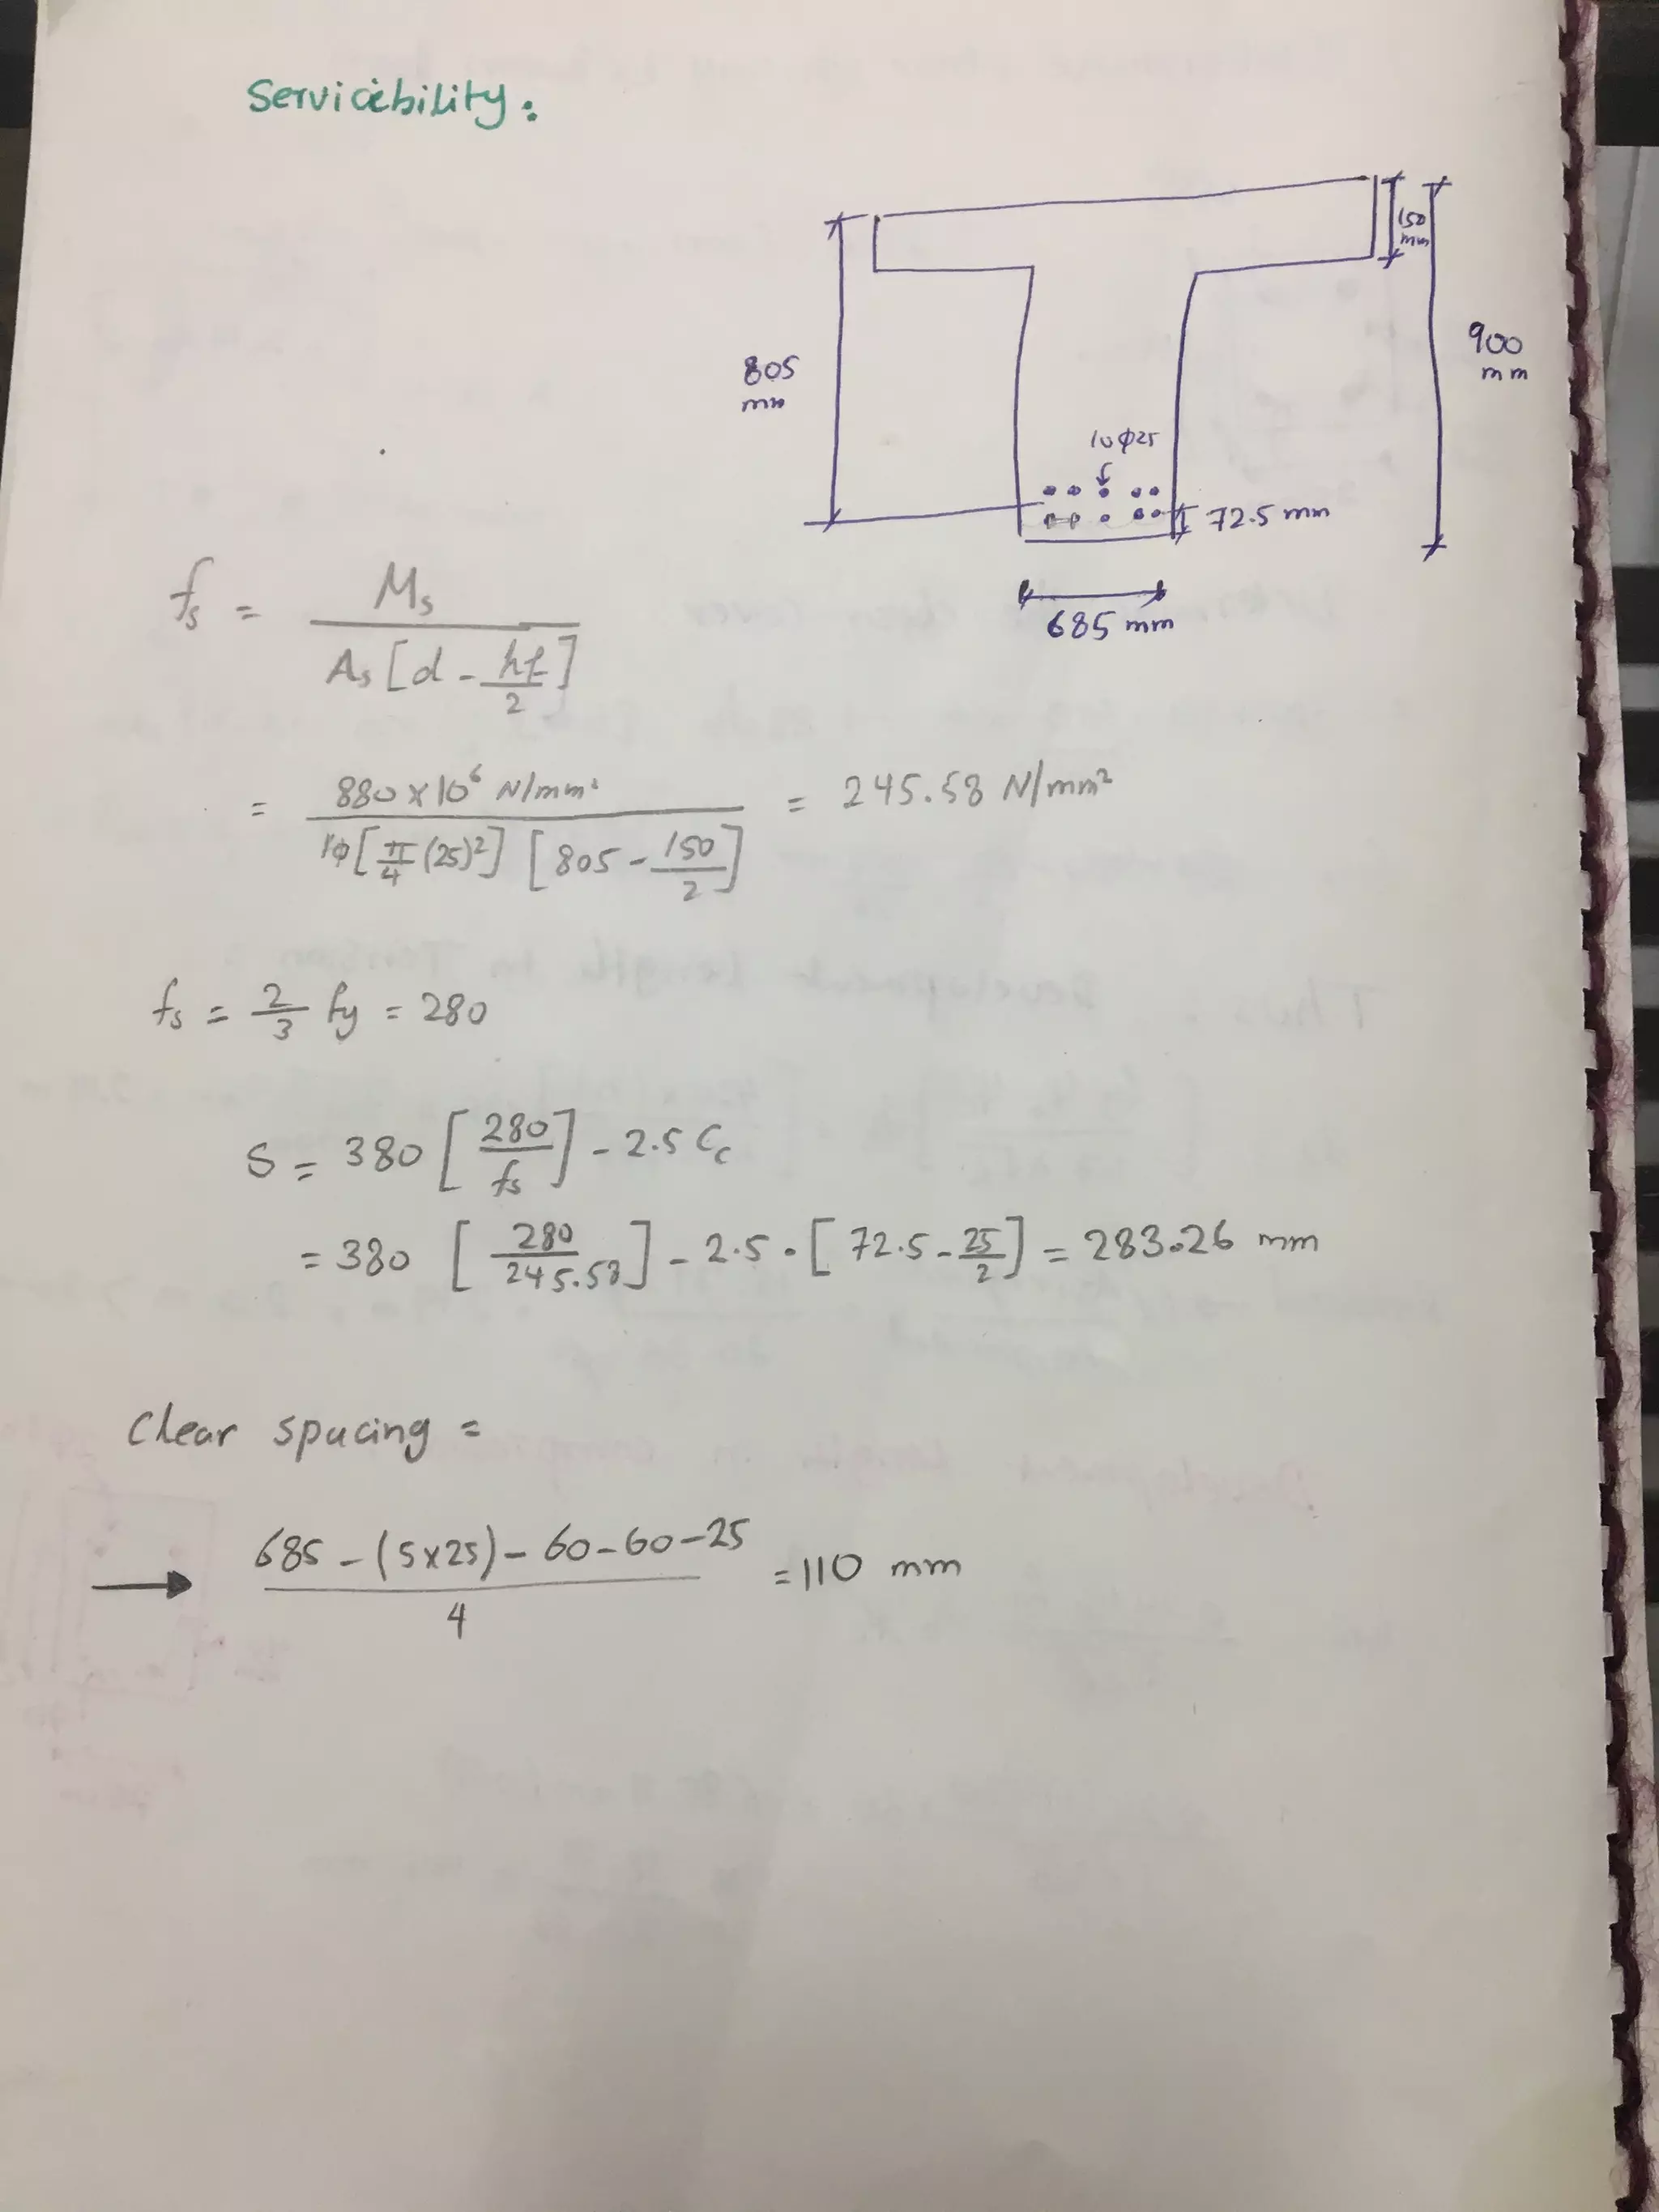 Servicibility:
150
mm
805
mm
900
mm
10ϕ25
72.5 mm
685 mm
fs = Ms / As [d - hf/2]
= 880 x 10⁶ N/mm² / 10[π/4 (25)²] [805 - 150/2] = 245.58 N/mm²
fs = 2/3 fy = 280
S = 380 [280/fs] - 2.5 Cc
= 380 [280/245.58] - 2.5 • [72.5 - 25/2] = 283.26 mm
Clear spacing =
→ 685 - (5x25) - 60 - 60 - 25 / 4 = 110 mm